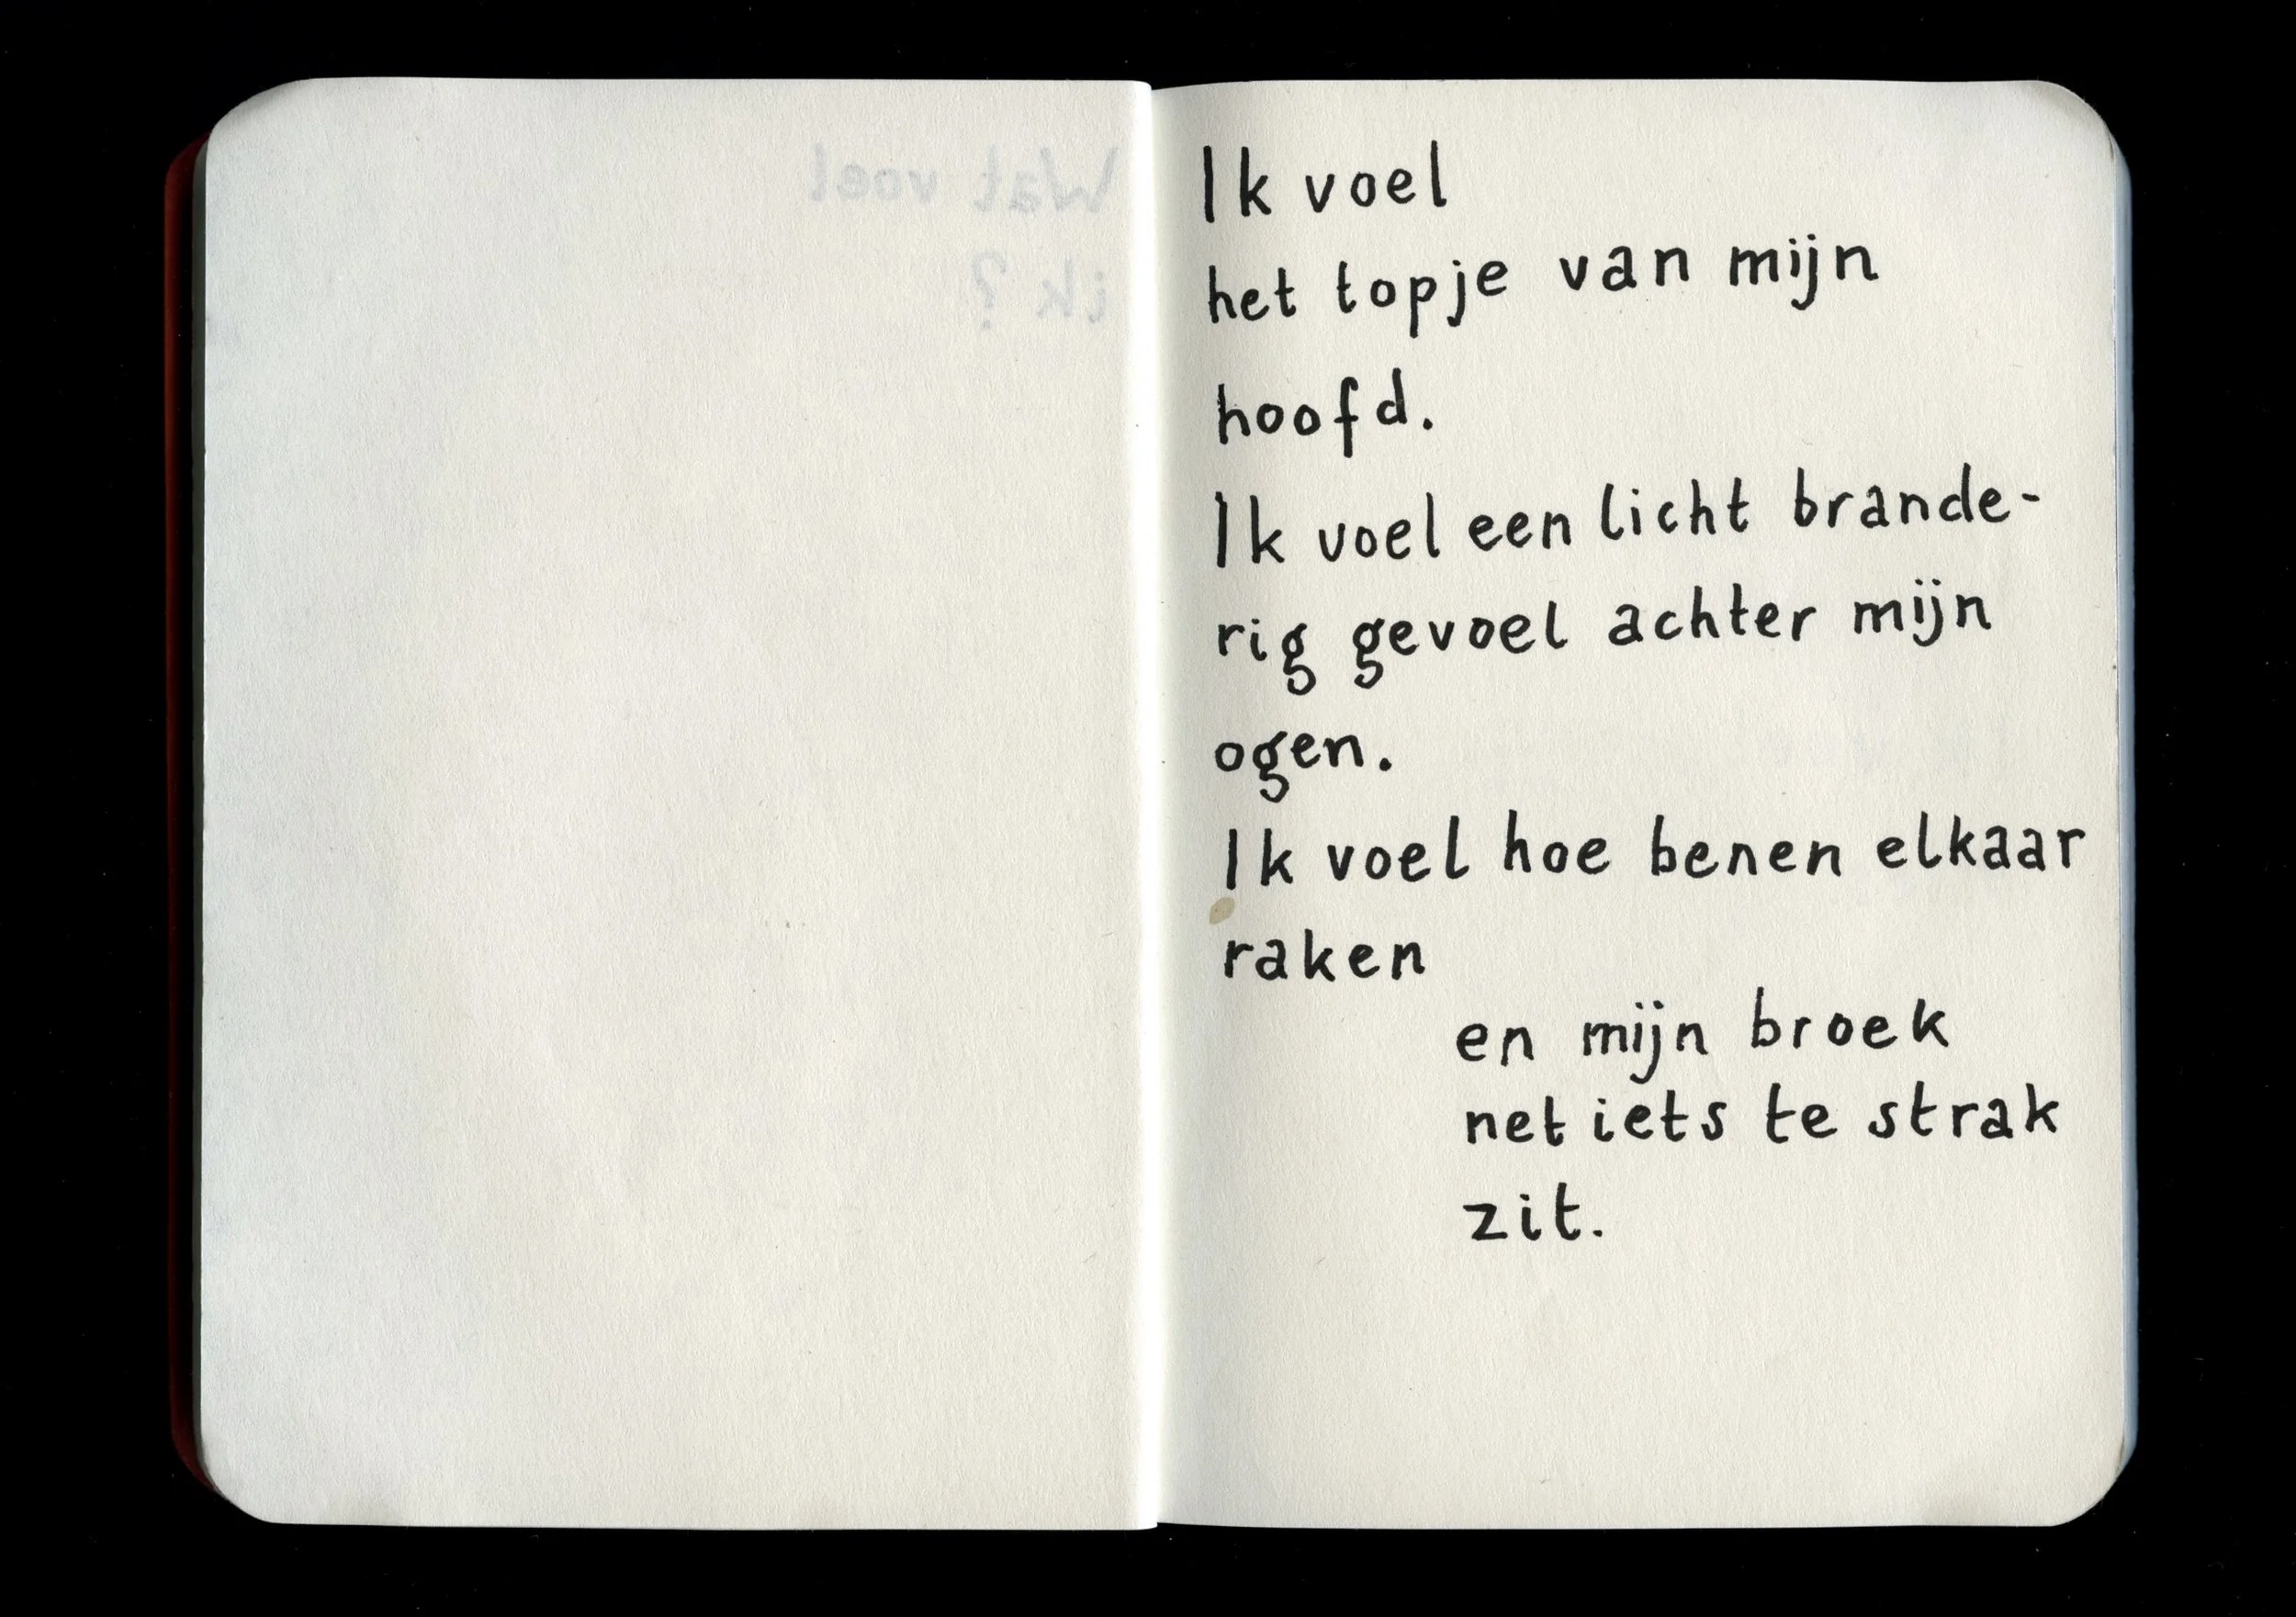 Wat voel
ik?
Ik voel
het topje van mijn
hoofd.
Ik voel een licht brande-
rig gevoel achter mijn
ogen.
Ik voel hoe benen elkaar
raken
en mijn broek
net iets te strak
zit.